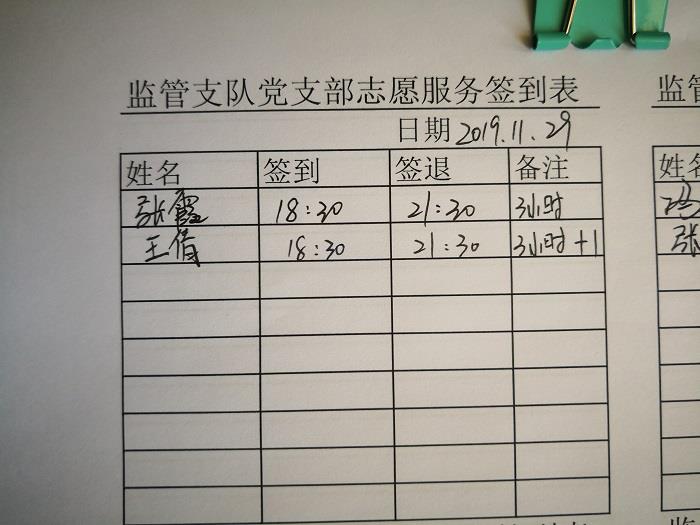 监管支队党支部志愿服务签到表
日期 2019.11.29
姓名 签到 签退 备注
张霞 18:30 21:30 3小时
王倩 18:30 21:30 3小时+1
监管
姓名
张